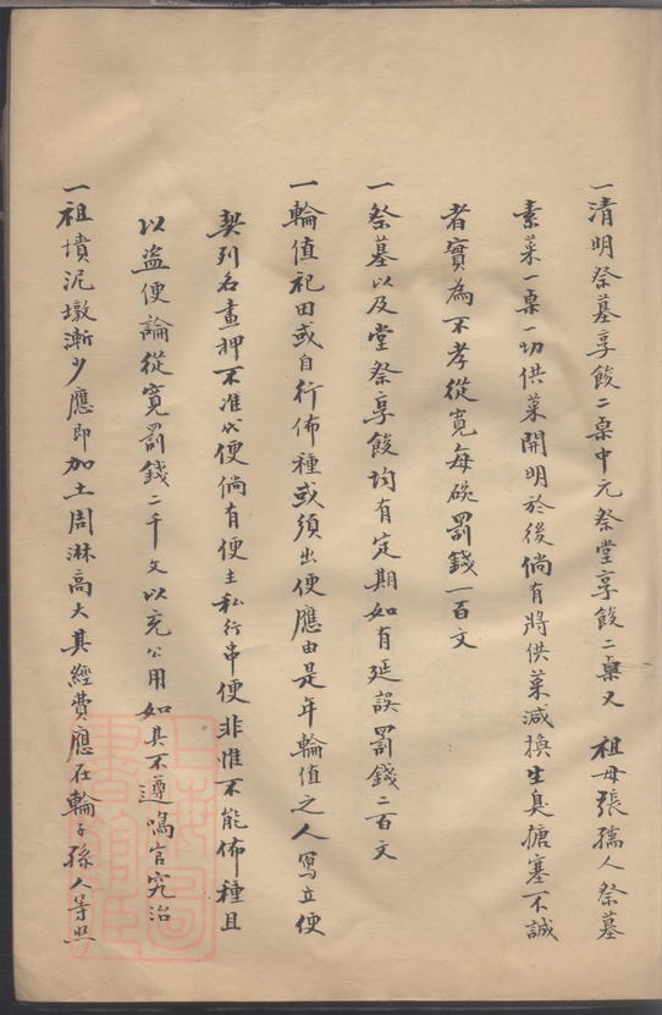 一清明祭墓享餕二桌中元祭堂享餕二桌又 祖母張孺人祭墓
素菜一桌一切供菜開明於後倘有將供菜減換生臭搪塞不誠
者實為不孝從寬每碗罰錢一百文
一祭墓以及堂祭享餕均有定期如有延誤罰錢二百文
一輪值祀田或自行佈種或須出便應由是年輪值之人寫立便
契列名畫押不准代便倘有便主私行串便非惟不能佈種且
以盜便論從寬罰錢二千文以充公用如其不遵鳴官究治
一祖墳泥墩漸少應即加土周淋高大其經費應在輪子孫人等照